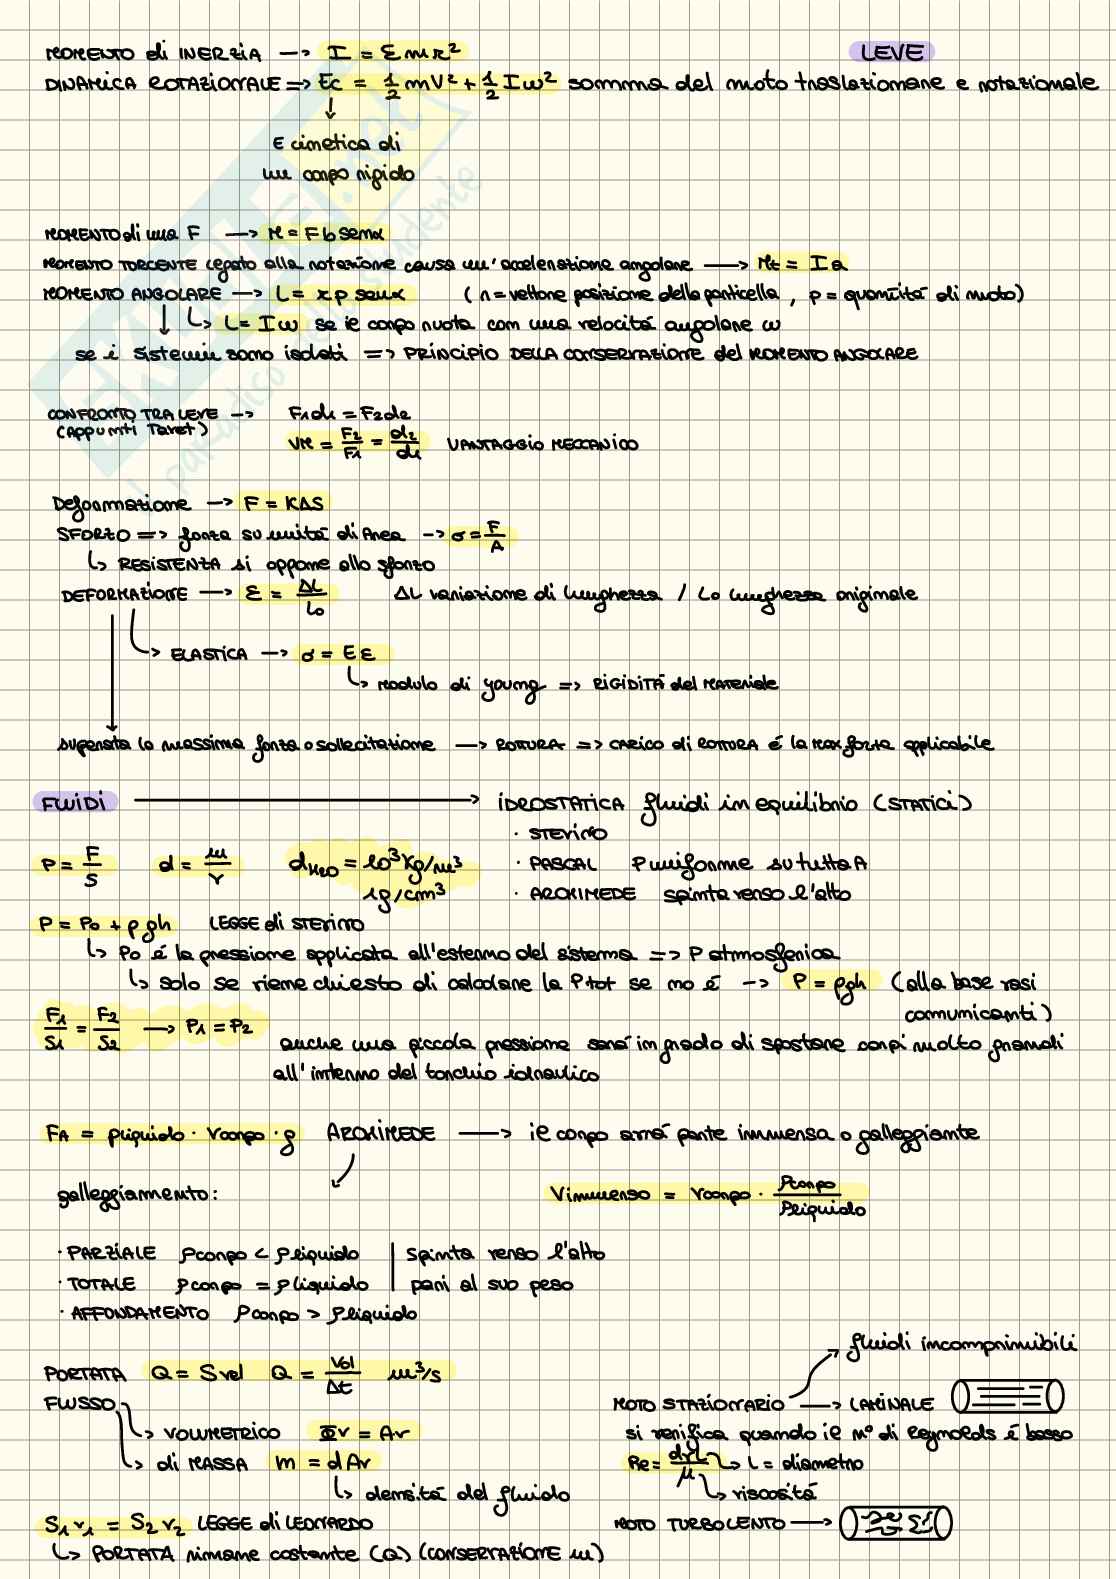 MOMENTO di INERZIA --> I = Σ m r²
LEVE
DINAMICA ROTAZIONALE => Ec = 1/2 mV² + 1/2 Iω² somma del moto traslazionare e rotazionale
E cinetica di
un corpo rigido
MOMENTO di una F --> M = F b senα
MOMENTO TORCENTE legato alla rotazione causa un'accelerazione angolare --> Mt = I a
MOMENTO ANGOLARE --> L = r p senα (r = vettore posizione della particella, p = quantità di moto)
L = Iω se il corpo ruota con una velocità angolare ω
se i sistemi sono isolati => PRINCIPIO DELLA CONSERVAZIONE del MOMENTO ANGOLARE
CONFRONTO TRA LEVE --> F1d1 = F2d2
(APPUNTI Tablet)
VM = F2/F1 = d2/d1 VANTAGGIO MECCANICO
Deformazione --> F = KΔS
SFORZO => forza su unità di Area --> σ = F/A
RESISTENZA si oppone allo sforzo
DEFORMAZIONE --> ε = ΔL/L0 ΔL variazione di lunghezza / L0 lunghezza originale
ELASTICA --> σ = E ε
modulo di young => RIGIDITÀ del MATERIALE
superata la massima forza o sollecitazione --> ROTTURA => CARICO di ROTTURA é la max forza applicabile
FLUIDI --> IDROSTATICA fluidi in equilibrio (STATICI)
· STEVINO
P = F/S d = m/V dH2O = 10³ kg/m³ · PASCAL P uniforme su tutta A
1g/cm³ · ARCHIMEDE spinta verso l'alto
P = P0 + ρgh LEGGE di STEVINO
P0 é la pressione applicata all'esterno del sistema => P atmosferica
solo se viene chiesto di calcolare la Ptot se no é --> P = ρgh (alla base vasi
comunicanti)
F1/S1 = F2/S2 --> P1 = P2
anche una piccola pressione sará in grado di spostare corpi molto grandi
all'interno del torchio idraulico
FA = ρliquido · Vcorpo · g ARCHIMEDE --> il corpo avrá parte immersa o galleggiante
galleggiamento: Vimmerso = Vcorpo · ρcorpo/ρliquido
· PARZIALE ρcorpo < ρliquido | spinta verso l'alto
· TOTALE ρcorpo = ρliquido | pari al suo peso
· AFFONDAMENTO ρcorpo > ρliquido
fluidi incomprimibili
PORTATA Q = S vel Q = Vol/Δt m³/s
FLUSSO MOTO STAZIONARIO --> LAMINALE
VOLUMETRICO Φv = Av si verifica quando il n° di Reynolds é basso
di MASSA m = dAv Re = dvL/μ L = diametro
densitá del fluido viscositá
S1v1 = S2v2 LEGGE di LEONARDO MOTO TURBOLENTO -->
PORTATA rimane costante (Q) (CONSERVAZIONE m)